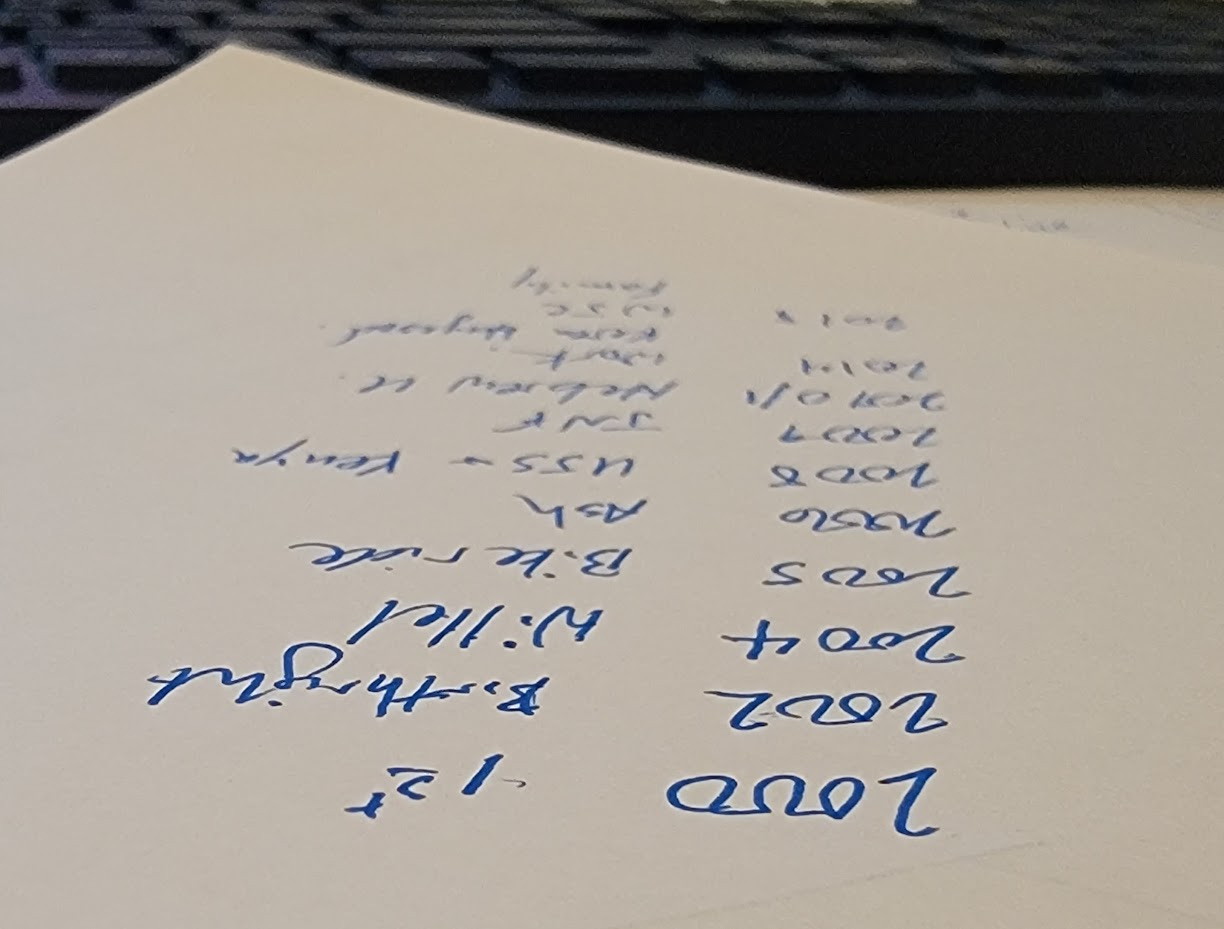 2000
2002 Birthright
2004 Hillel
2005 Bike ride
2006 Ash
2008 Kenya
2009 JNF
2010/11 Hebrew U.
2014 Work
Keren Hayesod
Family